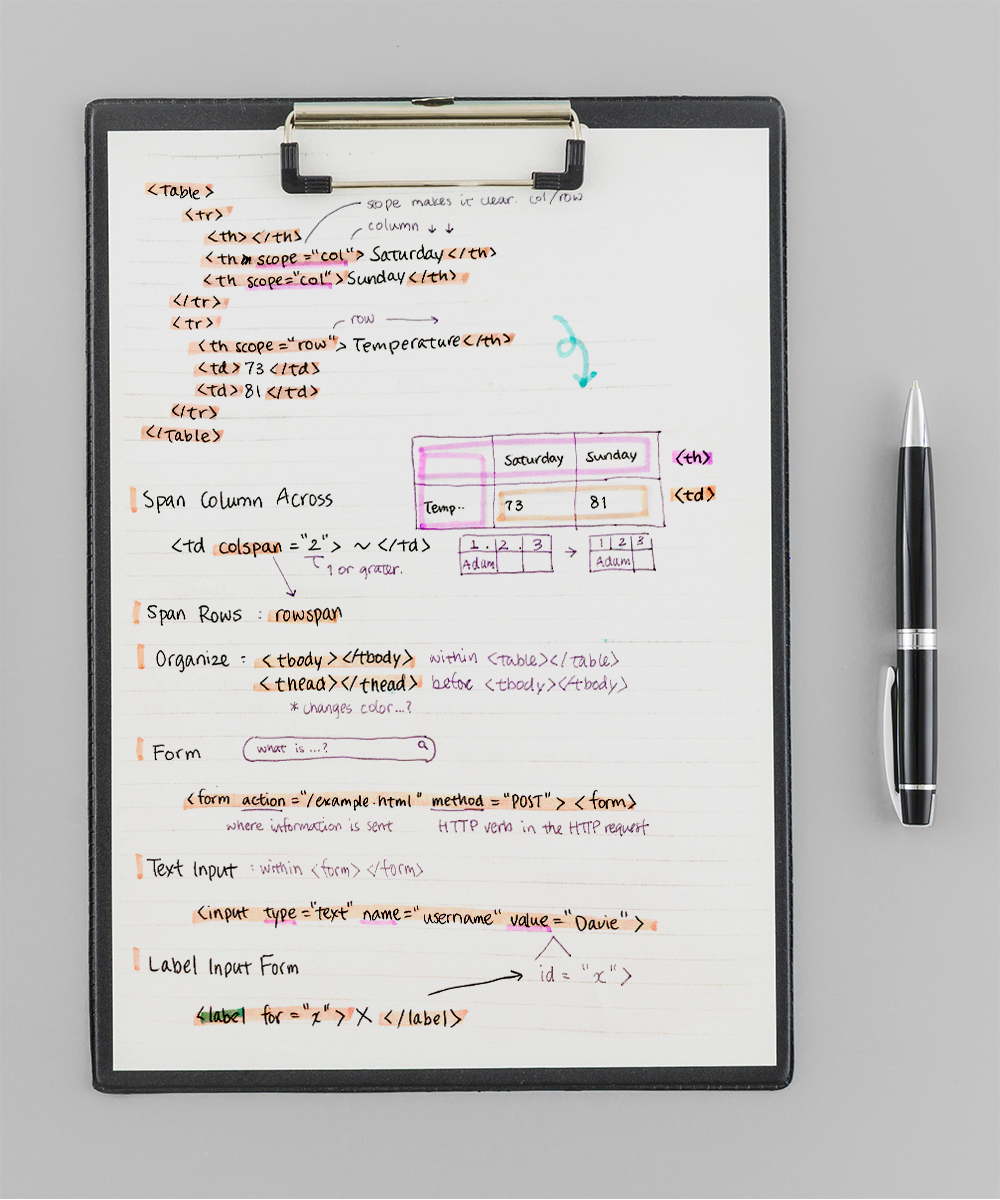 <Table>
<tr>
scope makes it clear. col/row
column ↓ ↓
<th></th>
<th scope="col">Saturday</th>
<th scope="col">Sunday</th>
</tr>
<tr>
row →
<th scope="row">Temperature</th>
<td>73</td>
<td>81</td>
</tr>
</Table>
Saturday Sunday <th>
Temp.. 73 81 <td>
Span Column Across
<td colspan="2"> ~ </td>
1 or grater.
1 . 2 . 3 → 1 2 3
Adam Adam
Span Rows : rowspan
Organize : <tbody></tbody> within <table></table>
<thead></thead> before <tbody></tbody>
* changes color...?
Form what is ...?
<form action="/example.html" method="POST"> <form>
where information is sent HTTP verb in the HTTP request
Text Input : within <form></form>
<input type="text" name="username" value="Davie">
Label Input Form
id = "x">
<label for="x"> X </label>